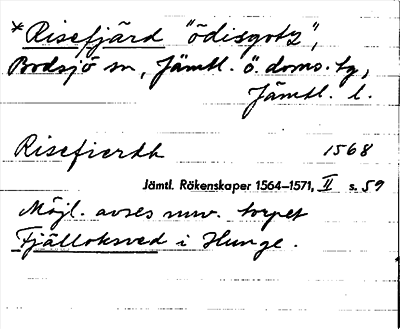 *Risefjärd "ödisgotz",
Bodsjö sn, Jämtl. ö. doms. tg,
Jämtl. l.
Risefierdh 1568
Jämtl. Räkenskaper 1564–1571, II s. 59
Möjl. avses nuv. torpet
Fjälloksved i Hunge.